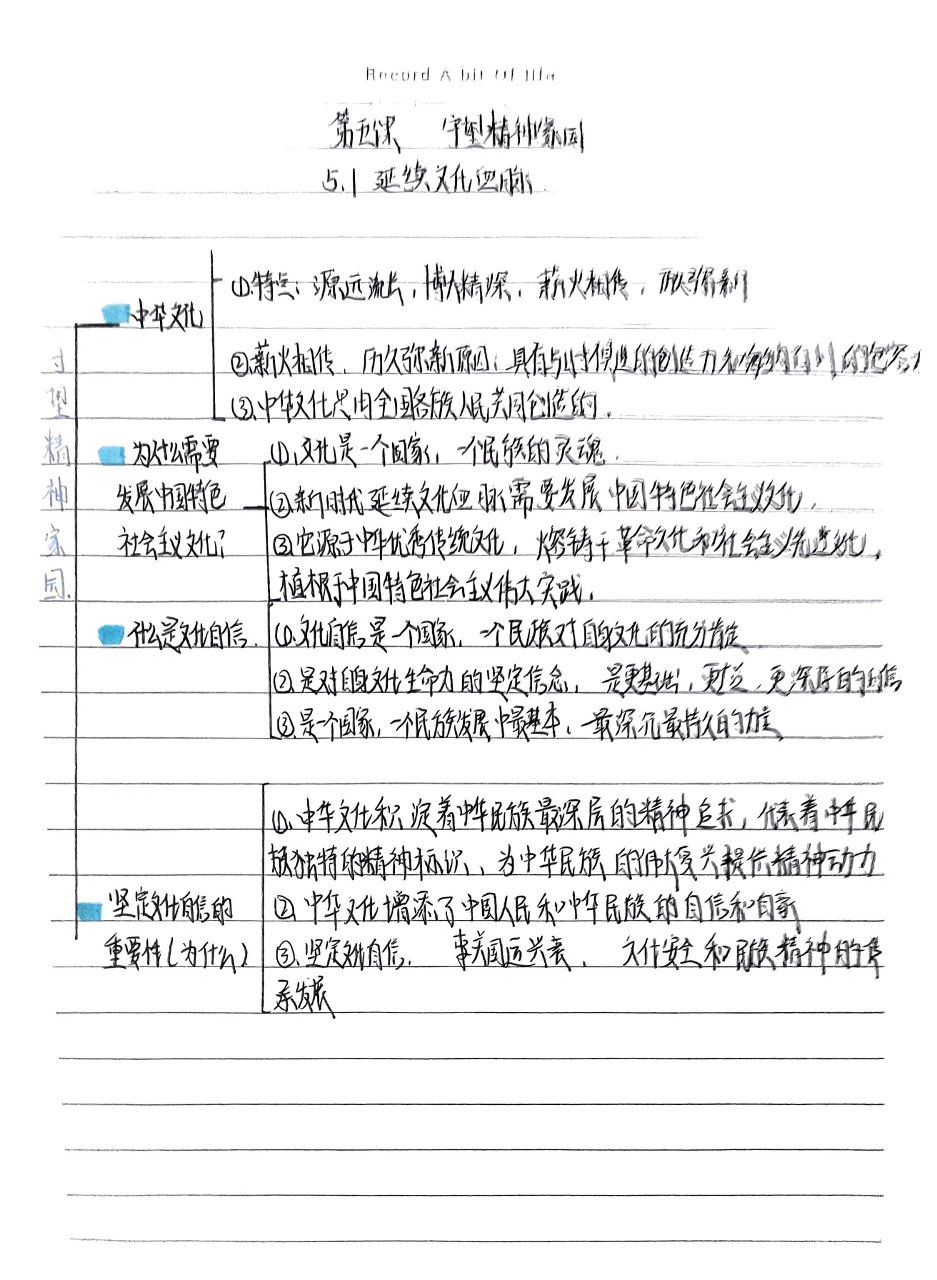 Record A bit Of life
第五课 守望精神家园
5.1 延续文化血脉
守望精神家园
中华文化
①特点:源远流长,博大精深,薪火相传,历久弥新
②薪火相传,历久弥新原因:具有与时俱进的创造力和海纳百川的包容力
③中华文化是由全国各族人民共同创造的.
为什么需要
发展中国特色
社会主义文化?
①文化是一个国家,一个民族的灵魂.
②新时代延续文化血脉需要发展中国特色社会主义文化.
③它源于中华优秀传统文化,熔铸于革命文化和社会主义先进文化,
植根于中国特色社会主义伟大实践.
什么是文化自信.
①文化自信是一个国家,一个民族对自身文化的充分肯定
②是对自身文化生命力的坚定信念,是更基础,更广泛,更深厚的自信
③是一个国家,一个民族发展中最基本,最深沉最持久的力量
坚定文化自信的
重要性(为什么)
①中华文化积淀着中华民族最深层的精神追求,代表着中华民
族独特的精神标识,为中华民族的伟大复兴提供精神动力
②中华文化增添了中国人民和中华民族的自信和自豪
③坚定文化自信,事关国运兴衰,文化安全和民族精神的传
承发展